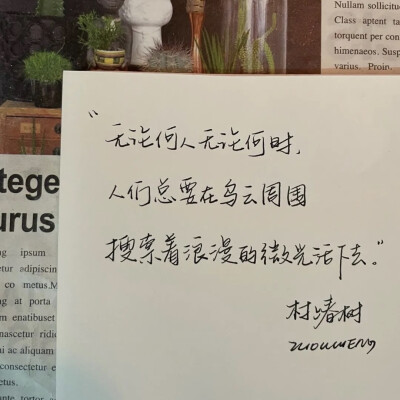 Nullam sollicitu
Class aptent ta
torquent per con
himenaeos. Susp
varius. Proin
“无论何人无论何时,
人们总要在乌云周围
搜索着浪漫的微光活下去。”
村上春树
tege
urus
ipsum
etur adipiscin
co metus.M
ng at porta
enatibuset
nascetur ridic
ac aliquam
consectetur e
etus.
tortor a